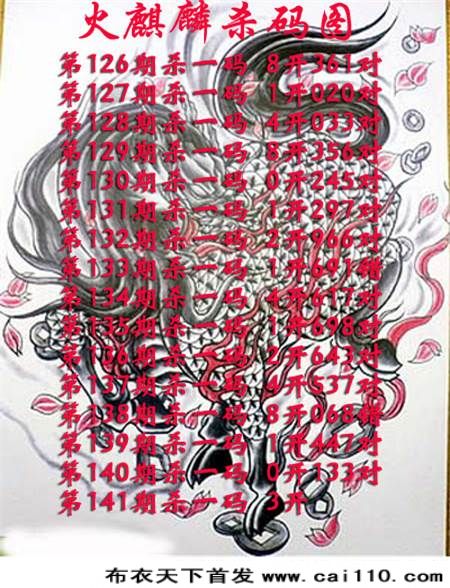 火麒麟杀码图
第126期杀一码 8开361对
第127期杀一码 1开020对
第128期杀一码 4开033对
第129期杀一码 8开356对
第130期杀一码 0开245对
第131期杀一码 1开297对
第132期杀一码 2开966对
第133期杀一码 1开691错
第134期杀一码 4开617对
第135期杀一码 1开698对
第136期杀一码 2开643对
第137期杀一码 4开537对
第138期杀一码 8开068错
第139期杀一码 1开447对
第140期杀一码 0开133对
第141期杀一码 3开
布衣天下首发 www.cai110.com